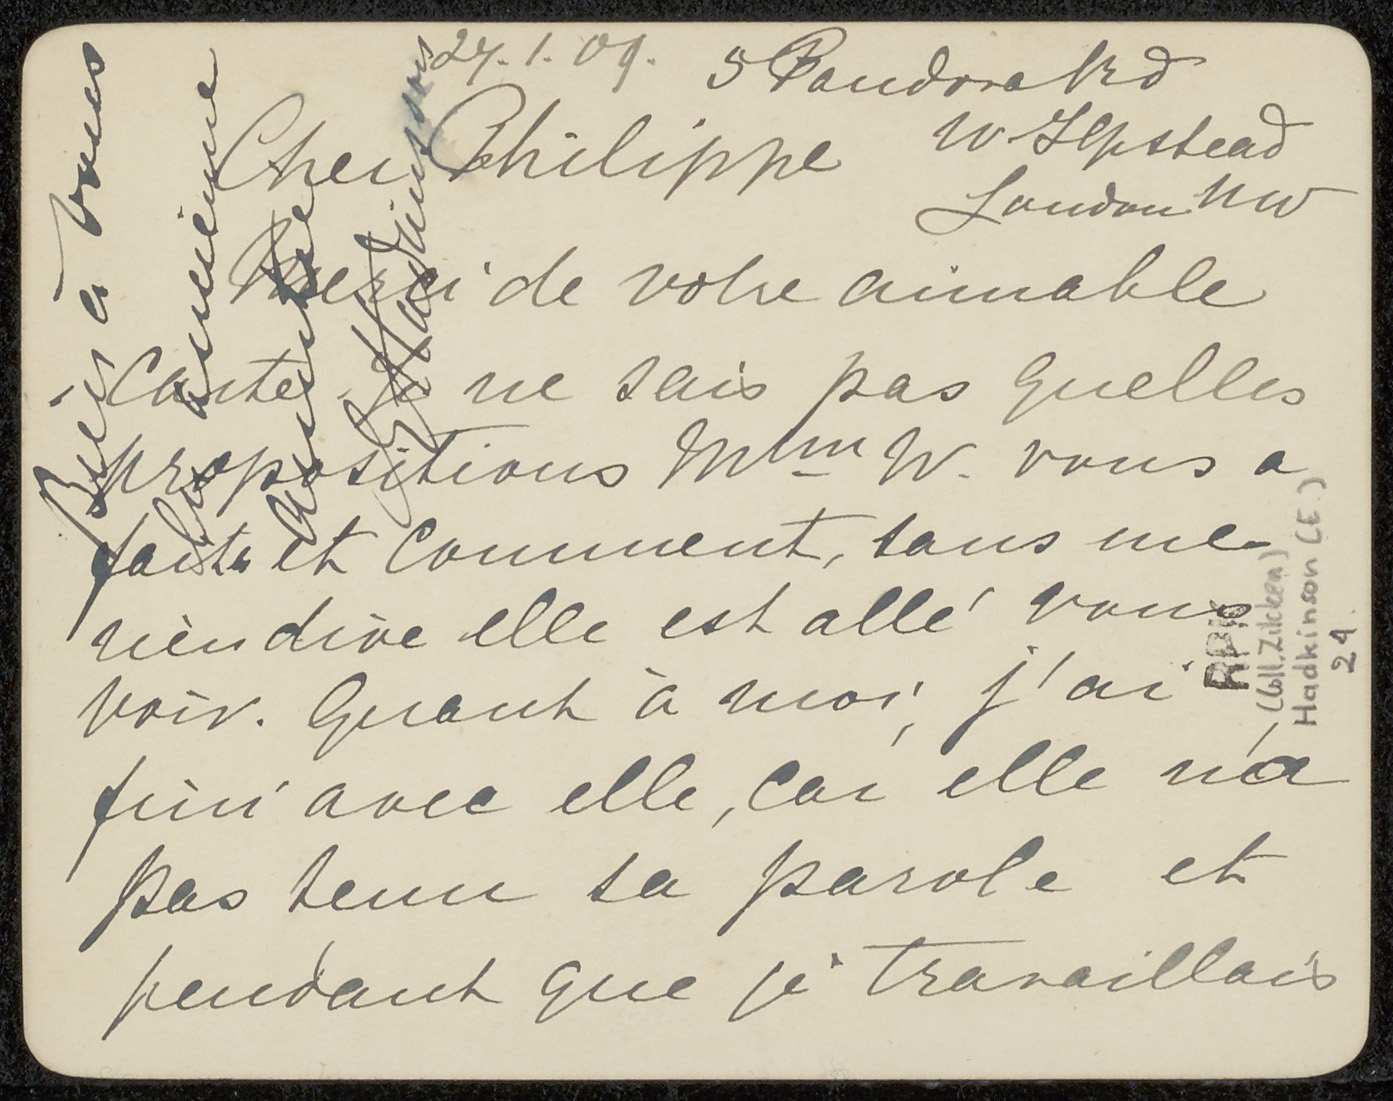 27.1.09.
5 Pandora Rd
W. Hpstead
London NW
Cher Philippe
Merci de votre aimable
Carte. Je ne sais pas quelles
propositions Mme W. vous a
faite et comment, sans me
rien dire elle est allé vous
voir. Quant à moi, j'ai
fini avec elle, car elle n'a
pas tenu sa parole et
pendant que je travaillais
Bien à vous
ancienne
Hadkinson
RPK
(Coll. Zilcken)
Hadkinson (E.)
29.